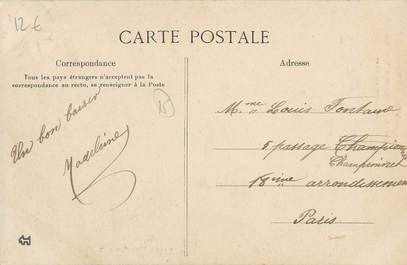 12 €
CARTE POSTALE
Correspondance
Tous les pays étrangers n'acceptent pas la
correspondance au recto, se renseigner à la Poste
Un bon baiser
Madeleine
15
Adresse
Mme Louis Fontaine
8 passage Championnet
Championnet
18ième arrondissement
Paris